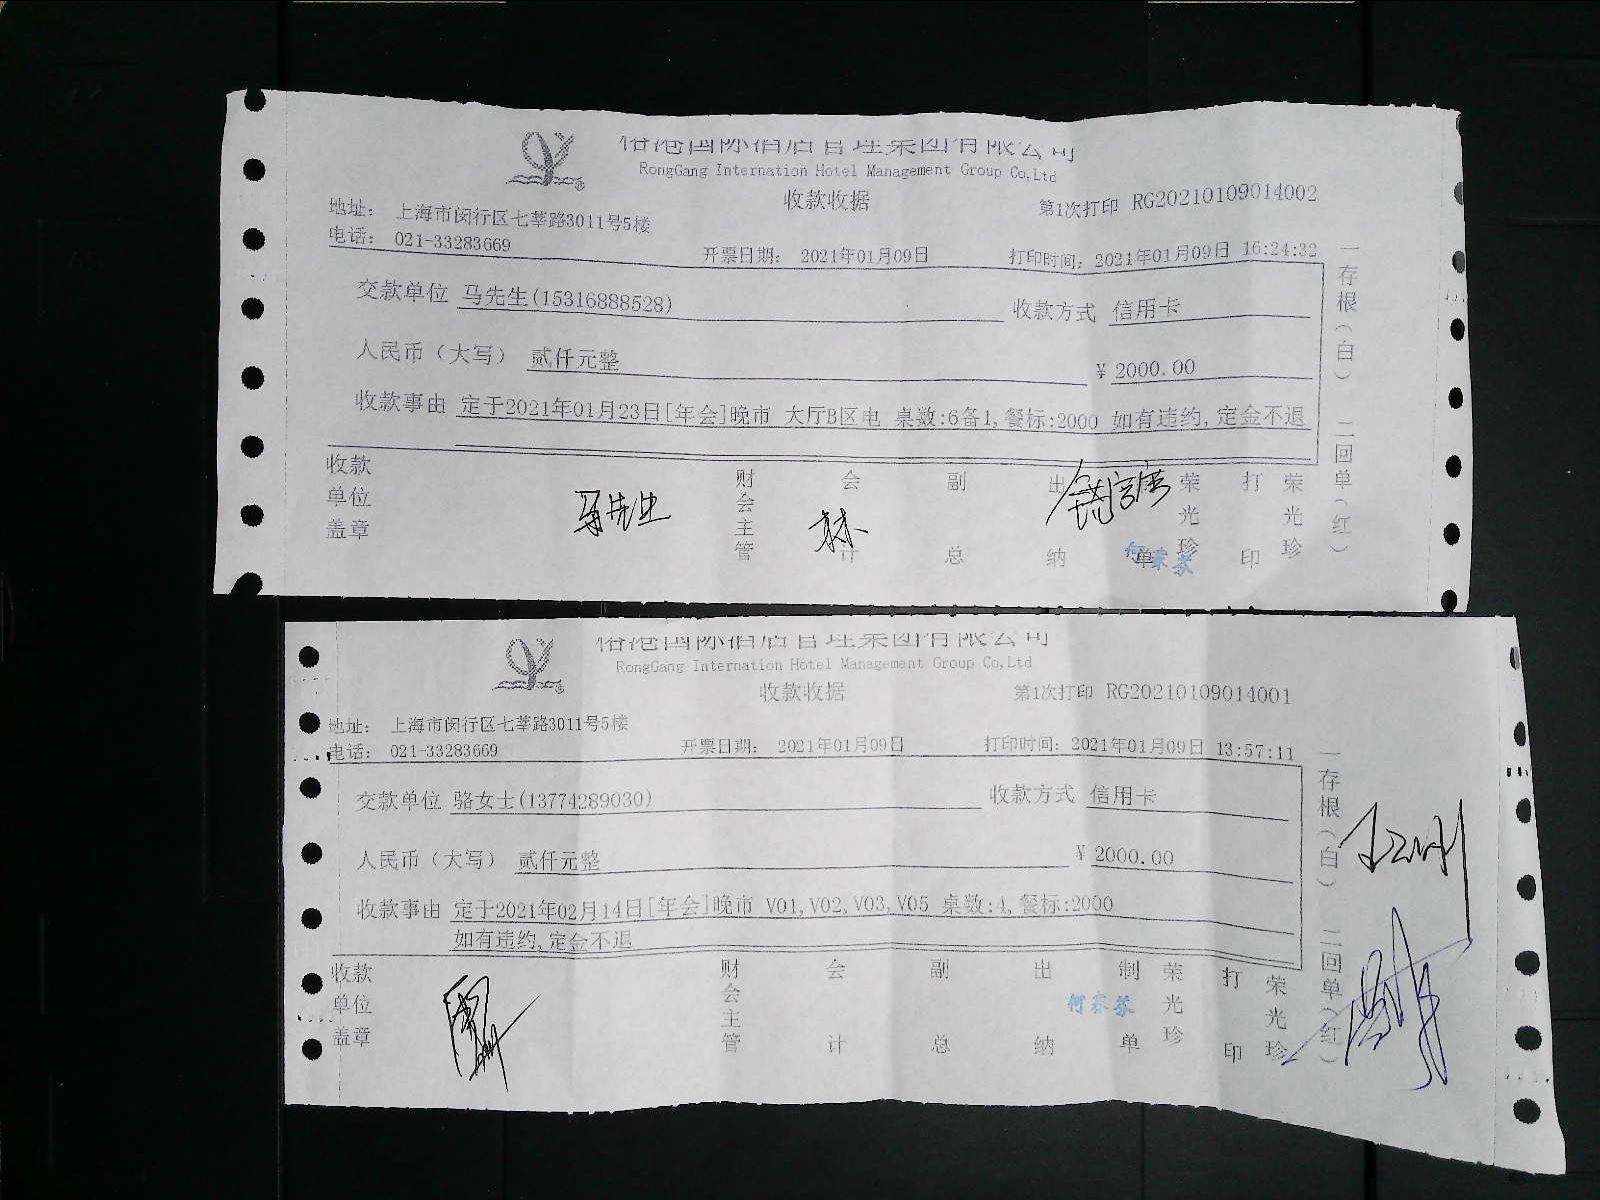 裕港国际酒店管理集团有限公司
RongGang Internation Hotel Management Group Co,Ltd
收款收据
第1次打印 RG20210109014002
地址： 上海市闵行区七莘路3011号5楼
电话： 021-33283669
开票日期： 2021年01月09日
打印时间：2021年01月09日 16:24:32
交款单位 马先生(15316888528)
收款方式 信用卡
人民币（大写） 贰仟元整
￥2000.00
收款事由 定于2021年01月23日[年会]晚市 大厅B区电 桌数:6备1,餐标:2000 如有违约,定金不退
收款单位盖章
马先生
财会主管
会计
林
副总
出纳
单
荣光珍
何家芬
打印
荣光珍
一存根（白） 二回单（红）
裕港国际酒店管理集团有限公司
RongGang Internation Hotel Management Group Co,Ltd
收款收据
第1次打印 RG20210109014001
地址： 上海市闵行区七莘路3011号5楼
电话： 021-33283669
开票日期： 2021年01月09日
打印时间：2021年01月09日 13:57:11
交款单位 骆女士(13774289030)
收款方式 信用卡
人民币（大写） 贰仟元整
￥2000.00
收款事由 定于2021年02月14日[年会]晚市 V01,V02,V03,V05 桌数:4,餐标:2000
如有违约,定金不退
收款单位盖章
财会主管
会计
副总
出纳
制单
荣光珍
何家芬
打印
荣光珍
一存根（白） 二回单（红）